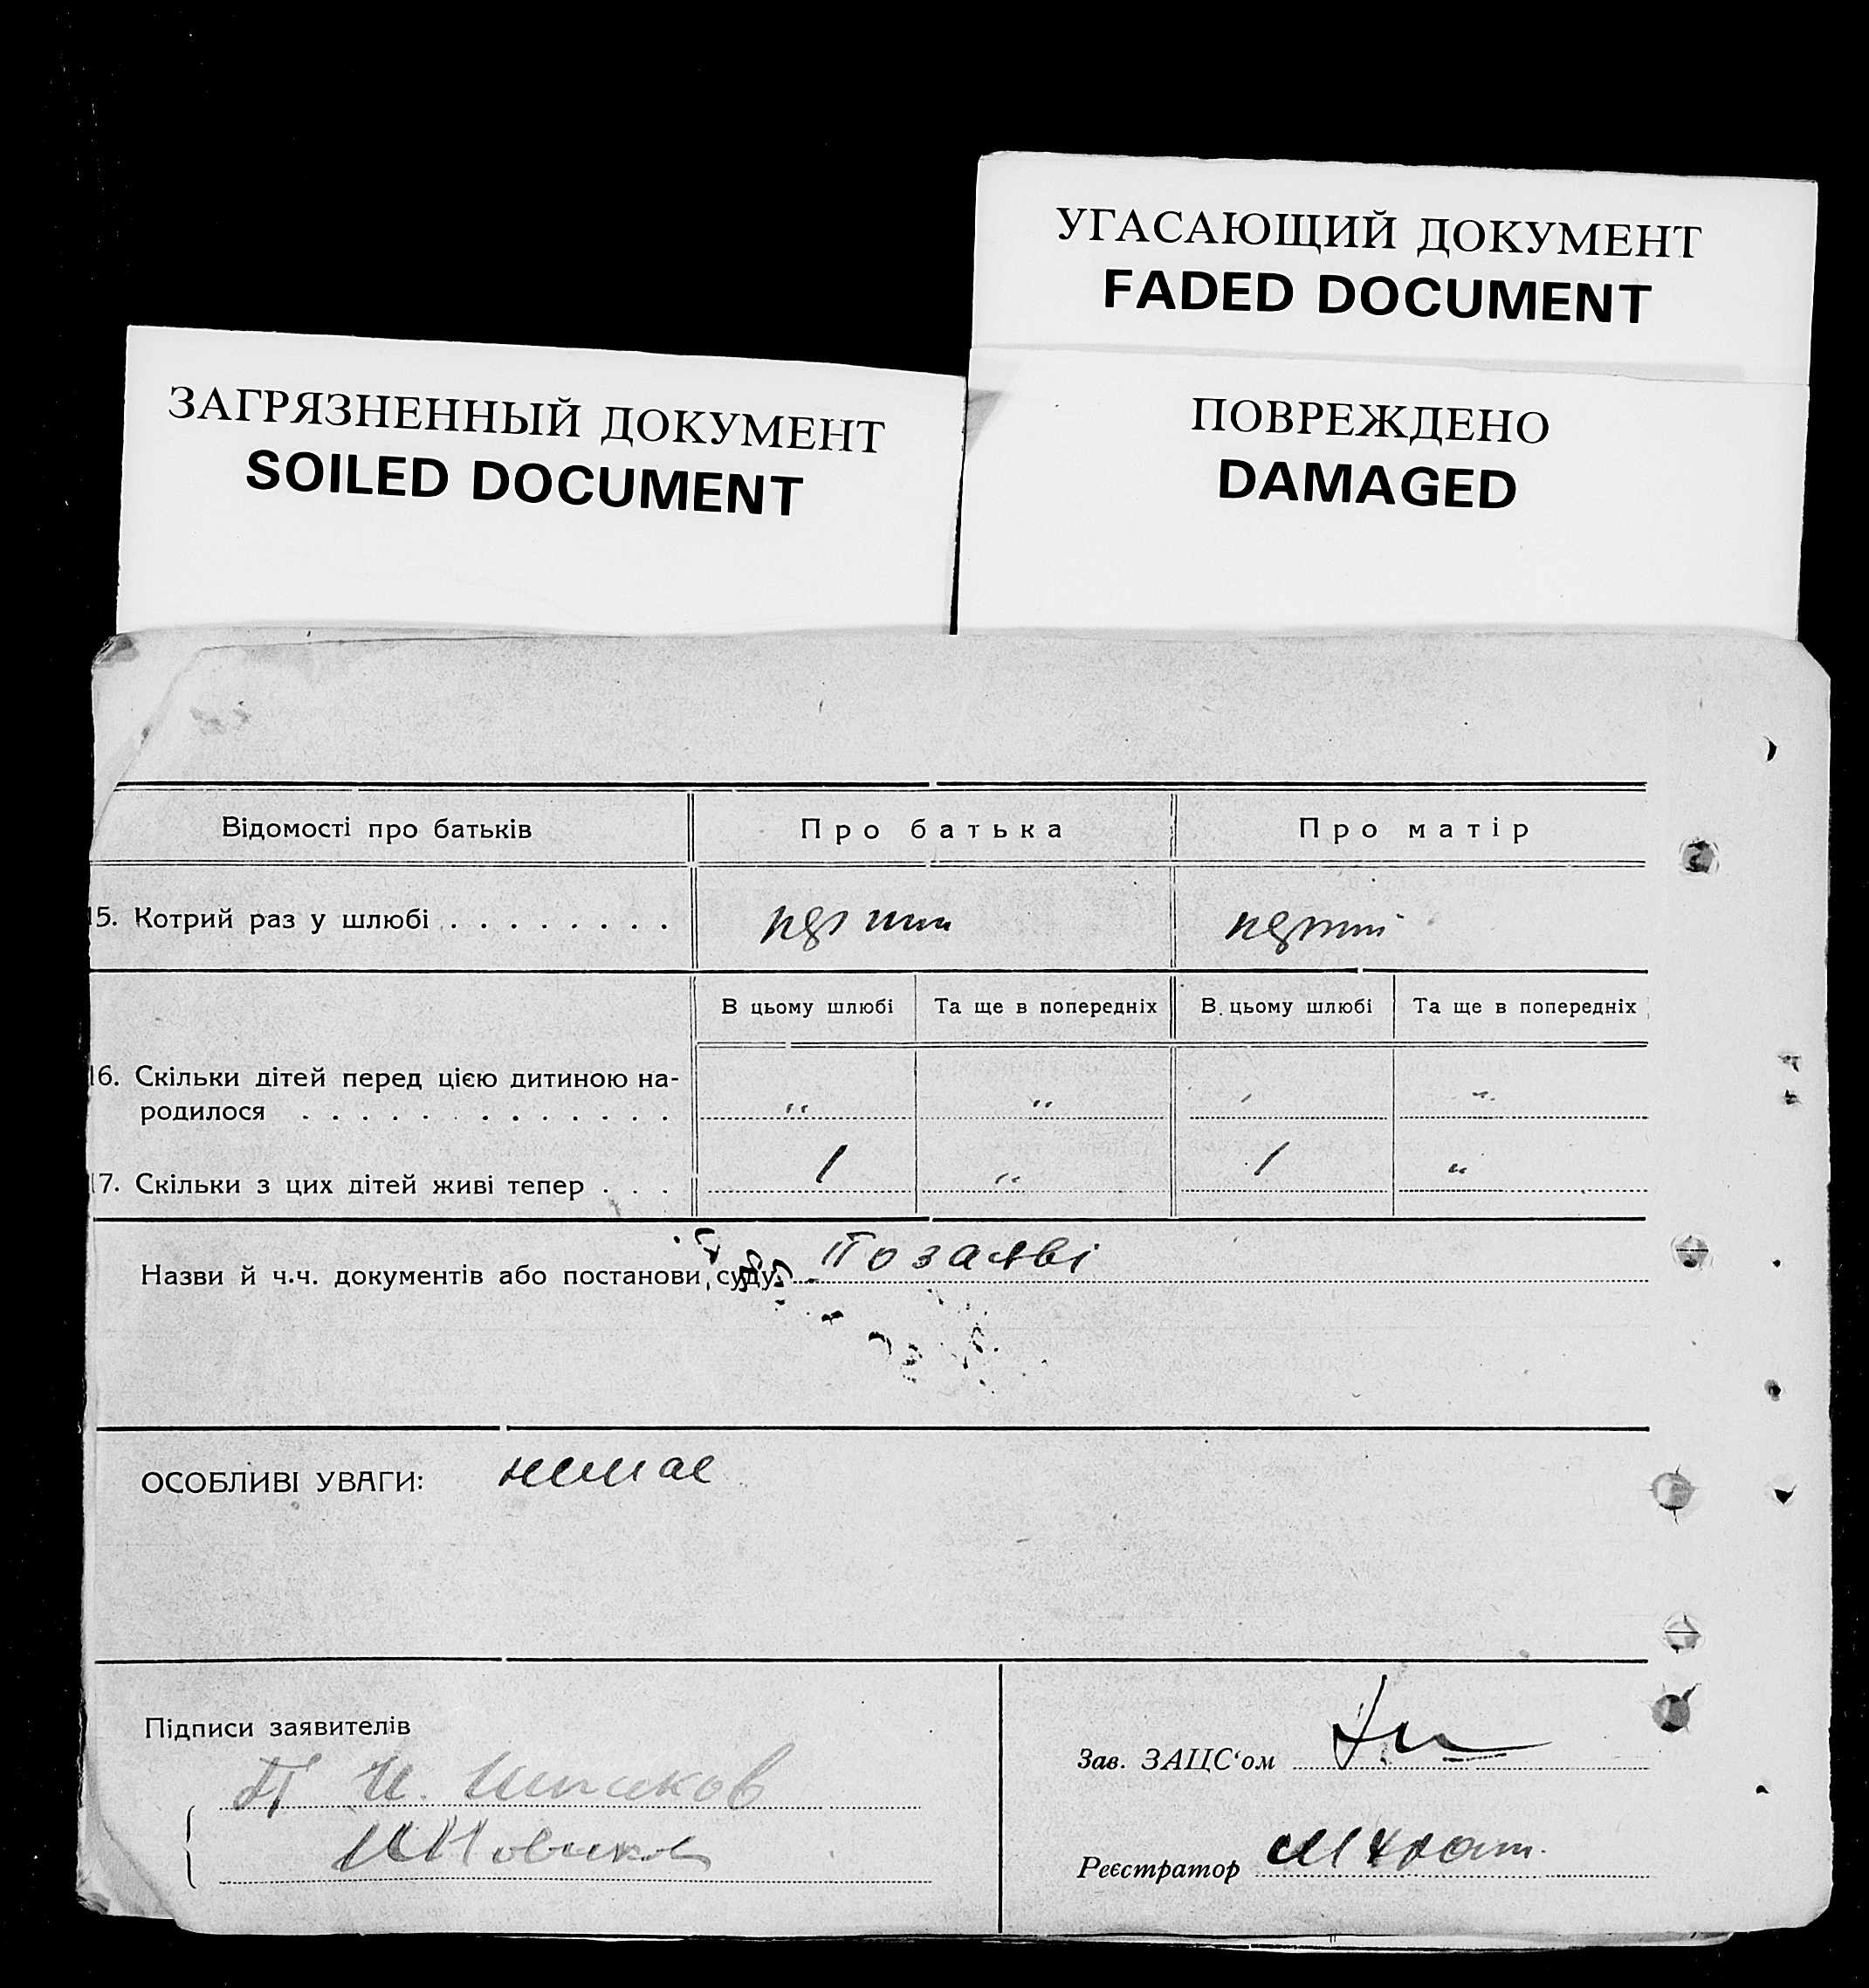 УГАСАЮЩИЙ ДОКУМЕНТ
FADED DOCUMENT
ЗАГРЯЗНЕННЫЙ ДОКУМЕНТ
SOILED DOCUMENT
ПОВРЕЖДЕНО
DAMAGED
Відомості про батьків Про батька Про матір
15. Котрий раз у шлюбі . . . . . . . . перший перший
В цьому шлюбі Та ще в попередніх В цьому шлюбі Та ще в попередніх
16. Скільки дітей перед цією дитиною на-
родилося . . . . . . . . . . . . . „ „ „ „
17. Скільки з цих дітей живі тепер . . . 1 „ 1 „
Назви й ч.ч. документів або постанови суду По заяві
ОСОБЛИВІ УВАГИ: немає
Підписи заявителів
Зав. ЗАЦС‘ом
П И.
Реєстратор